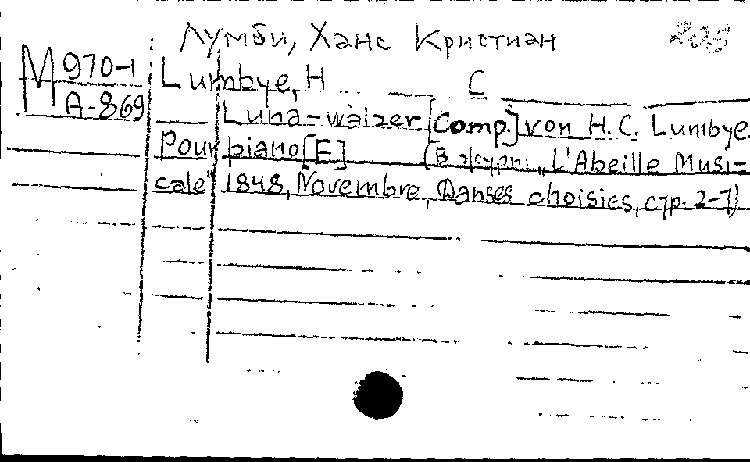 Лумби, Ханс Кристиан 205
М 970-1 Lumbye, H ... C
А-869 Luna-walzer [Comp.] von H.C. Lumbye.
Pour piano [E] „L'Abeille Musi=
cale" 1848, Novembre, Danses choisies, стр. 2-7)